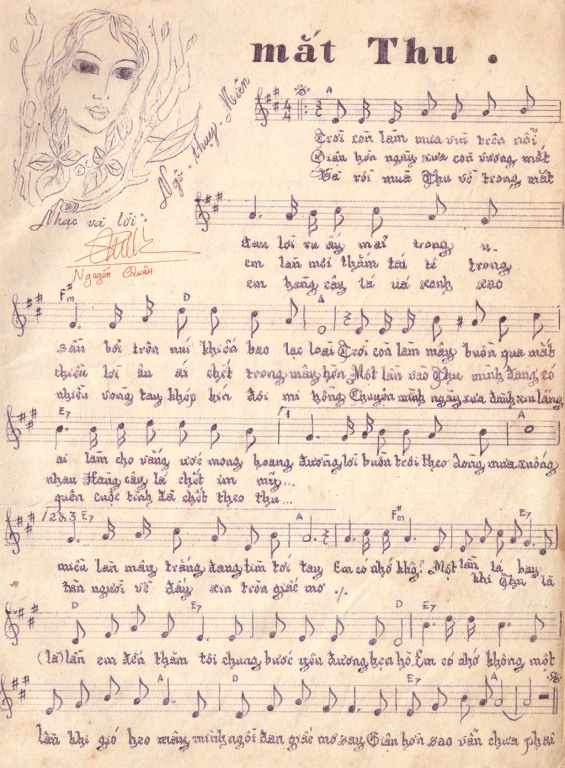 mắt Thu .
Ngô . Thụy . Miên
Nhạc và lời :
Nguyễn Quân
A
Trời còn làm mưa vui trên nỗi
Giận hờn ngày xưa còn vương mắt
Và rồi mùa Thu về trong mắt
đau lời ru ấy mãi trong u.
em làn môi thắm tái tê trong
em hàng cây lá úa xanh xao
F#m D A
sầu bổi trôn núi khiến bao lạc loài Trời còn làm mây buồn qua mắt
thiếu lời ân ái chết trong mây hồn Một lần vào Thu mình đang có
nhiều vòng tay khép kín đôi mi hồng Chuyện mình ngày xưa đành xin lặng
E7 A
ai làm cho vàng ước mong hoang đường lời buồn trôi theo dòng mưa xuống
nhau Hàng cây lá chết im mãi...
quên cuộc tình đã chết theo thu...
1 2 & 3 E7 A F#m E7
miền làn mây trắng đang tìm tới tay Em có nhớ không? Một lần lá bay
tàn người về đây xin tròn giấc mơ ./. khi Thu là
D E7 D E7
(lá) lần em đến thăm tôi chung bước yêu đương hẹn hò. Em có nhớ không một
A D E7 A
lần khi gió heo mây mình ngồi đan giấc mơ say Giận hờn sao vẫn chưa phai